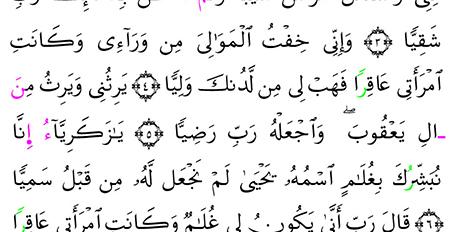 شَقِيًّا ﴿٣﴾ وَإِنِّى خِفْتُ ٱلْمَوَٰلِىَ مِن وَرَآءِى وَكَانَتِ
ٱمْرَأَتِى عَاقِرًا فَهَبْ لِى مِن لَّدُنكَ وَلِيًّا ﴿٤﴾ يَرِثُنِى وَيَرِثُ مِنَ
ـالِ يَعْقُوبَ ۖ وَٱجْعَلْهُ رَبِّ رَضِيًّا ﴿٥﴾ يَـٰزَكَرِيَّآءُ إِنَّا
نُبَشِّرُكَ بِغُلَـٰمٍ ٱسْمُهُۥ يَحْيَىٰ لَمْ نَجْعَل لَّهُۥ مِن قَبْلُ سَمِيًّا
﴿٦﴾ قَالَ رَبِّ أَنَّىٰ يَكُونُ لِى غُلَـٰمٌ وَكَانَتِ ٱمْرَأَتِى عَاقِرًا